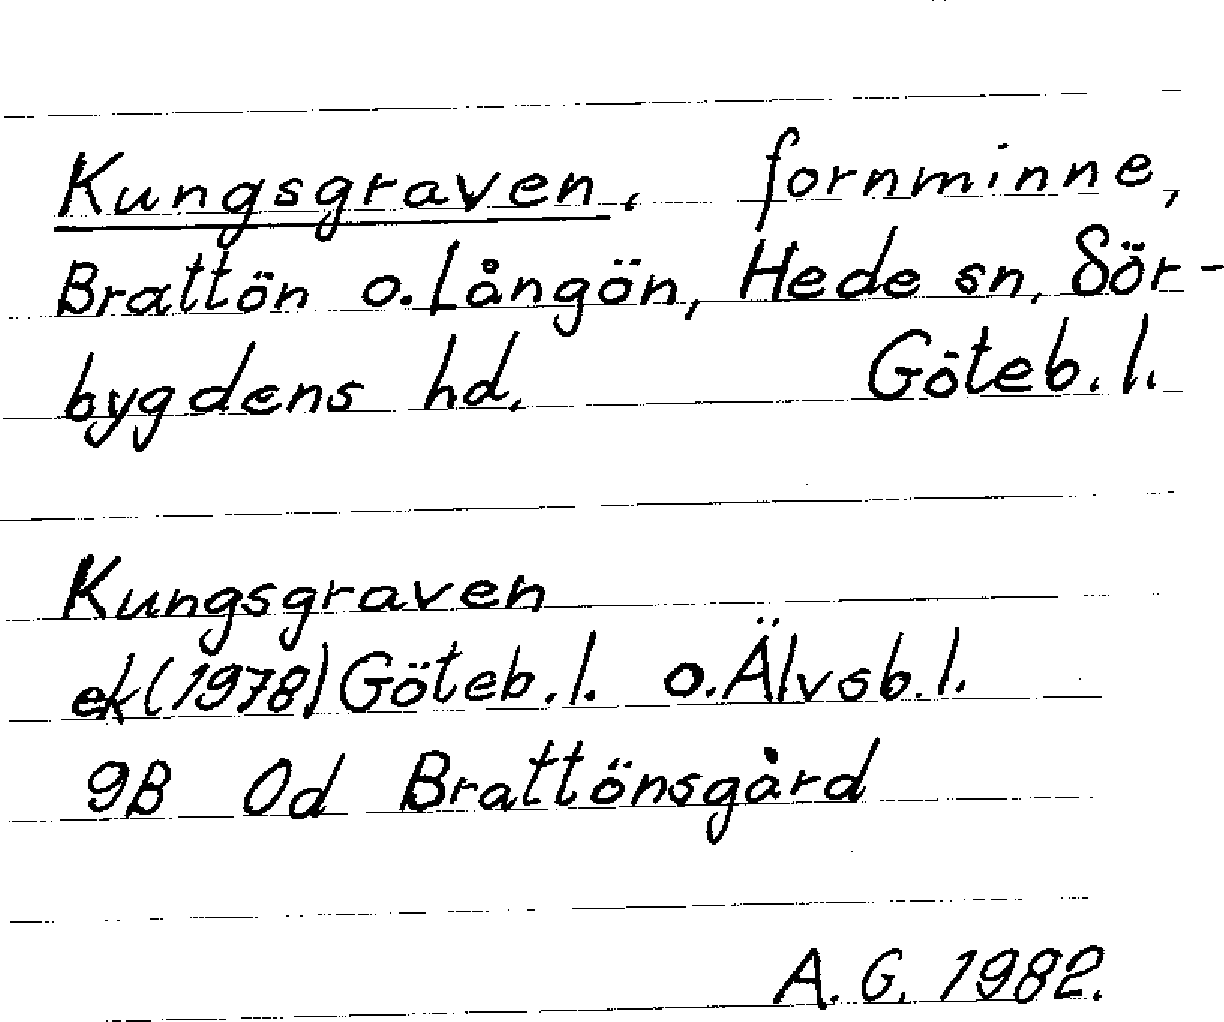 Kungsgraven, fornminne,
Brattön o. Långön, Hede sn, Sör-
bygdens hd, Göteb. l.
Kungsgraven
ek (1978) Göteb. l. o. Älvsb. l.
9B 0d Brattönsgård
A. G. 1982.